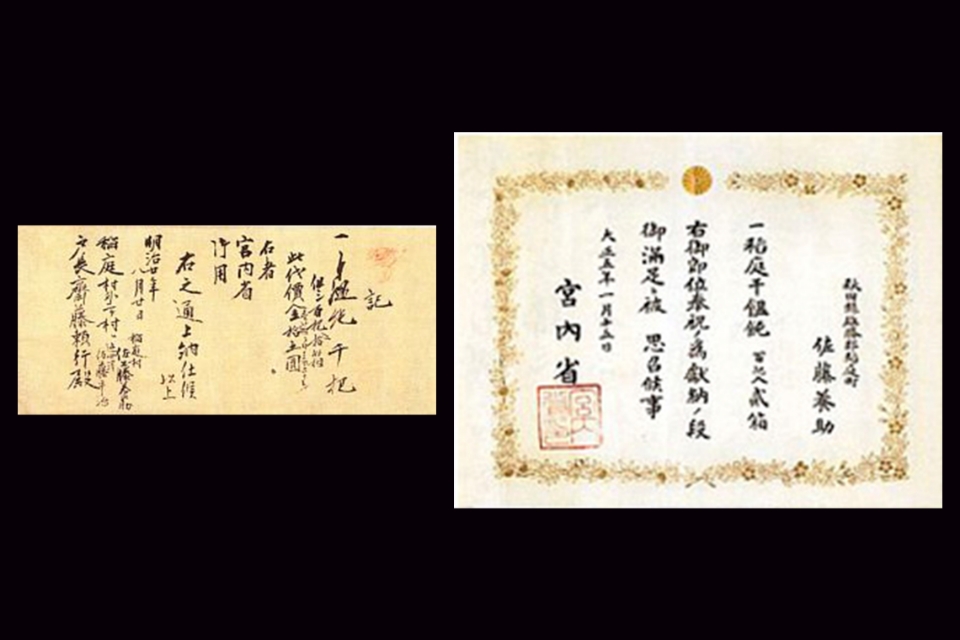 記
一
千把
此代價金拾五圓
右者
宮内省
御用
右之通上納仕候
以上
明治廿年
八月廿日
稲庭村
戸長齋藤頼行殿
秋田縣雄勝郡稲庭町
佐藤養助
一稲庭干饂飩 百把入貮箱
右御即位奉祝ノ為獻納ノ段
御滿足ニ被 思召候事
大正五年一月十五日
宮内省